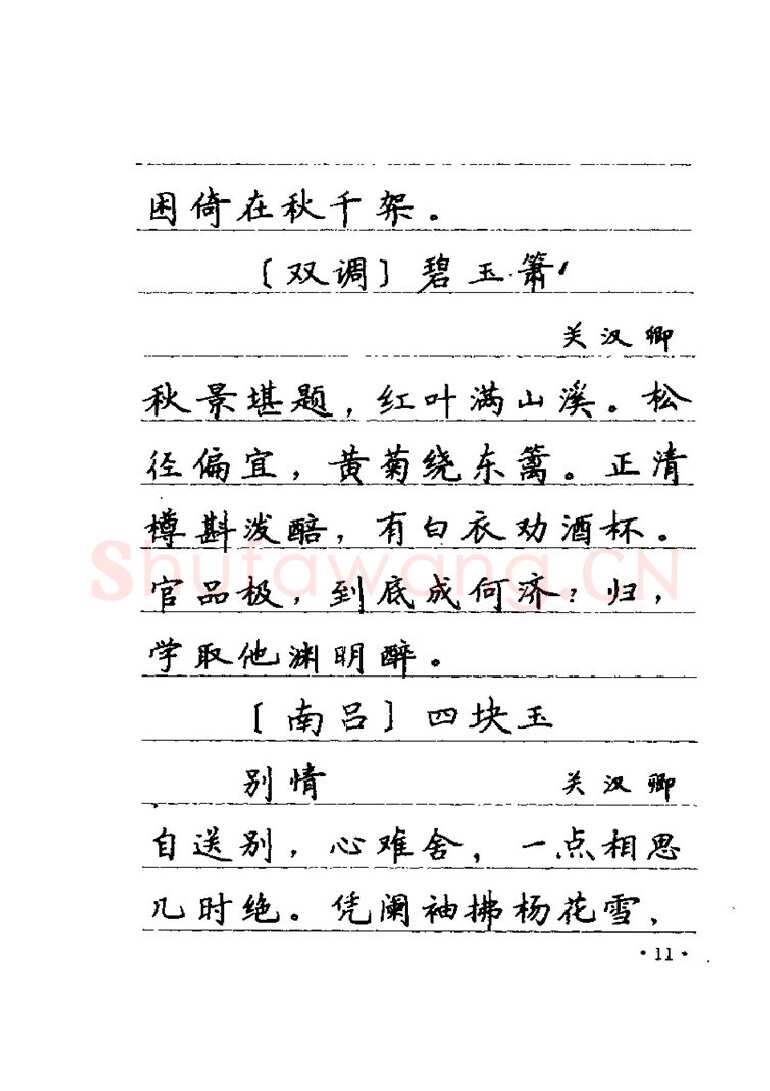 困倚在秋千架。
〔双调〕碧玉箫
关汉卿
秋景堪题，红叶满山溪。松
径偏宜，黄菊绕东篱。正清
樽斟泼醅，有白衣劝酒杯。
官品极，到底成何济？归，
学取他渊明醉。
［南吕］四块玉
别情　关汉卿
自送别，心难舍，一点相思
几时绝。凭阑袖拂杨花雪，
·11·
Shufawang.CN